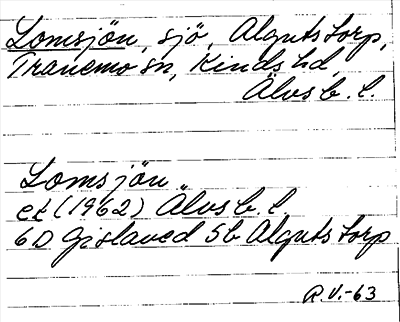 Lomsjön, sjö, Algutstorp,
Tranemo sn, Kinds hd,
Älvsb. l.
Lomsjön
ek (1962) Älvsb. l
6D Gislaved 5b Algutstorp
R V.-63